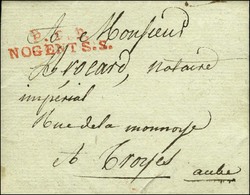 A Monsieur
P. 9. P.
NOGENT S.S.
Brocard, Notaire
impérial
Rue de la monnoye
A Troyes
aube